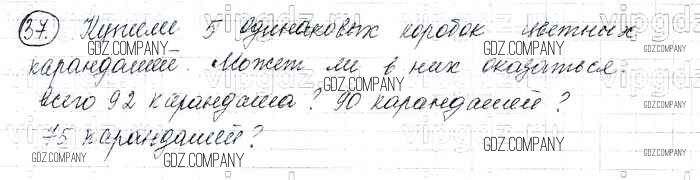 37. Купили 5 одинаковых коробок цветных
GDZ.COMPANY GDZ.COMPANY GDZ.COMPANY
карандашей. Может ли в них оказаться
GDZ.COMPANY
всего 92 карандаша? 90 карандашей?
GDZ.COMPANY GDZ.COMPANY
75 карандашей?
GDZ.COMPANY GDZ.COMPANY GDZ.COMPANY